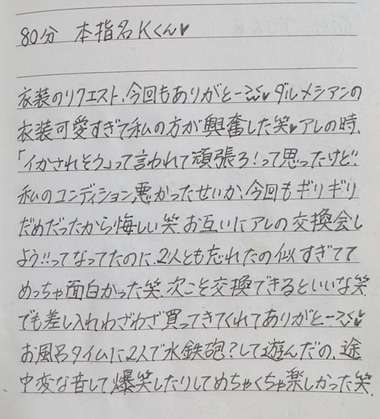 80分 本指名Kくん♥
衣装のリクエスト、今回もありがとーござい♥ダルメシアンの
衣装可愛すぎて私の方が興奮した笑♥アレの時、
「イかされそう」って言われて頑張ろ!って思ったけど!
私のコンディション悪かったせいか、今回もギリギリ
だめだったから悔しい笑 お互いにアレの交換会し
よう!!ってなってたのに、2人とも忘れたの似すぎてて
めっちゃ面白かった笑 次こそ交換できるといいな笑
でも差し入れわざわざ買ってきてくれてありがとー♥
お風呂タイムに2人で水鉄砲?して遊んだの、途
中変な音して爆笑したりしてめちゃくちゃ楽しかった笑